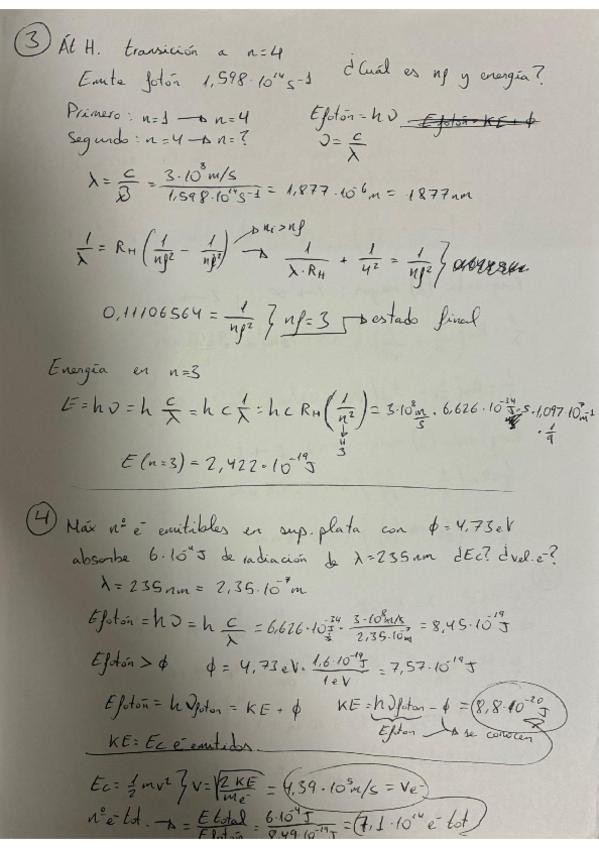 ③ Át H. transición a n=4
Emite fotón 1,598·10¹⁴ s⁻¹ ¿Cuál es nf y energía?
Primero: n=1 → n=4 Efotón = hν
Segundo: n=4 → n=? ν = c/λ
λ = c/ν = 3·10⁸ m/s / 1,598·10¹⁴ s⁻¹ = 1,877·10⁻⁶ m = 1877 nm
1/λ = R_H (1/nf² - 1/nf²) → ni>nf → 1/(λ·R_H) + 1/4² = 1/nf² }
0,11106564 = 1/nf² } nf=3 → estado final
Energía en n=3
E = hν = h c/λ = h c 1/λ = h c R_H (1/n²) = 3·10⁸ m/s · 6,626·10⁻³⁴ J·s · 1,097·10⁷ m⁻¹
↓ 3 · 1/9
E(n=3) = 2,422·10⁻¹⁹ J
④ Máx nº e⁻ emitibles en sup. plata con ϕ = 4,73 eV
absorbe 6·10⁻⁴ J de radiación de λ=235nm ¿Ec? ¿vel. e⁻?
λ = 235 nm = 2,35·10⁻⁷ m
Efotón = hν = h c/λ = 6,626·10⁻³⁴ · 3·10⁸ m/s / 2,35·10⁻⁷ m = 8,45·10⁻¹⁹ J
Efotón > ϕ ϕ = 4,73 eV · 1,6·10⁻¹⁹ J / 1 eV = 7,57·10⁻¹⁹ J
Efotón = hν fotón = KE + ϕ KE = hν fotón - ϕ = 8,8·10⁻²⁰ J
Efotón → se conocen
KE = Ec e⁻ emitidos.
Ec = 1/2 mv² } v = √(2 KE / me⁻) = 4,39·10⁵ m/s = Ve⁻
nº e⁻ tot. → = E total / E fotón = 6·10⁻⁴ J / 8,49·10⁻¹⁹ J = 7,1·10¹⁴ e⁻ tot